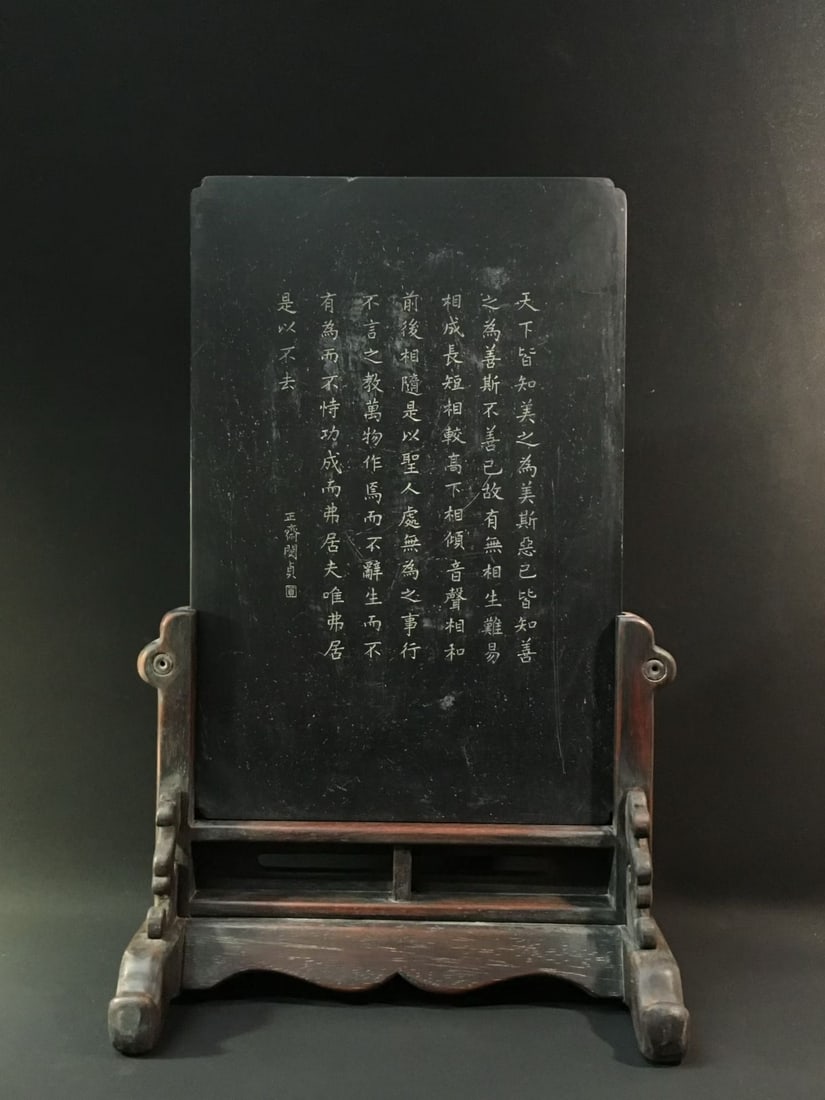 天下皆知美之為美斯惡已皆知善
之為善斯不善已故有無相生難易
相成長短相較高下相傾音聲相和
前後相隨是以聖人處無為之事行
不言之教萬物作焉而不辭生而不
有為而不恃功成而弗居夫唯弗居
是以不去
正齋閔貞